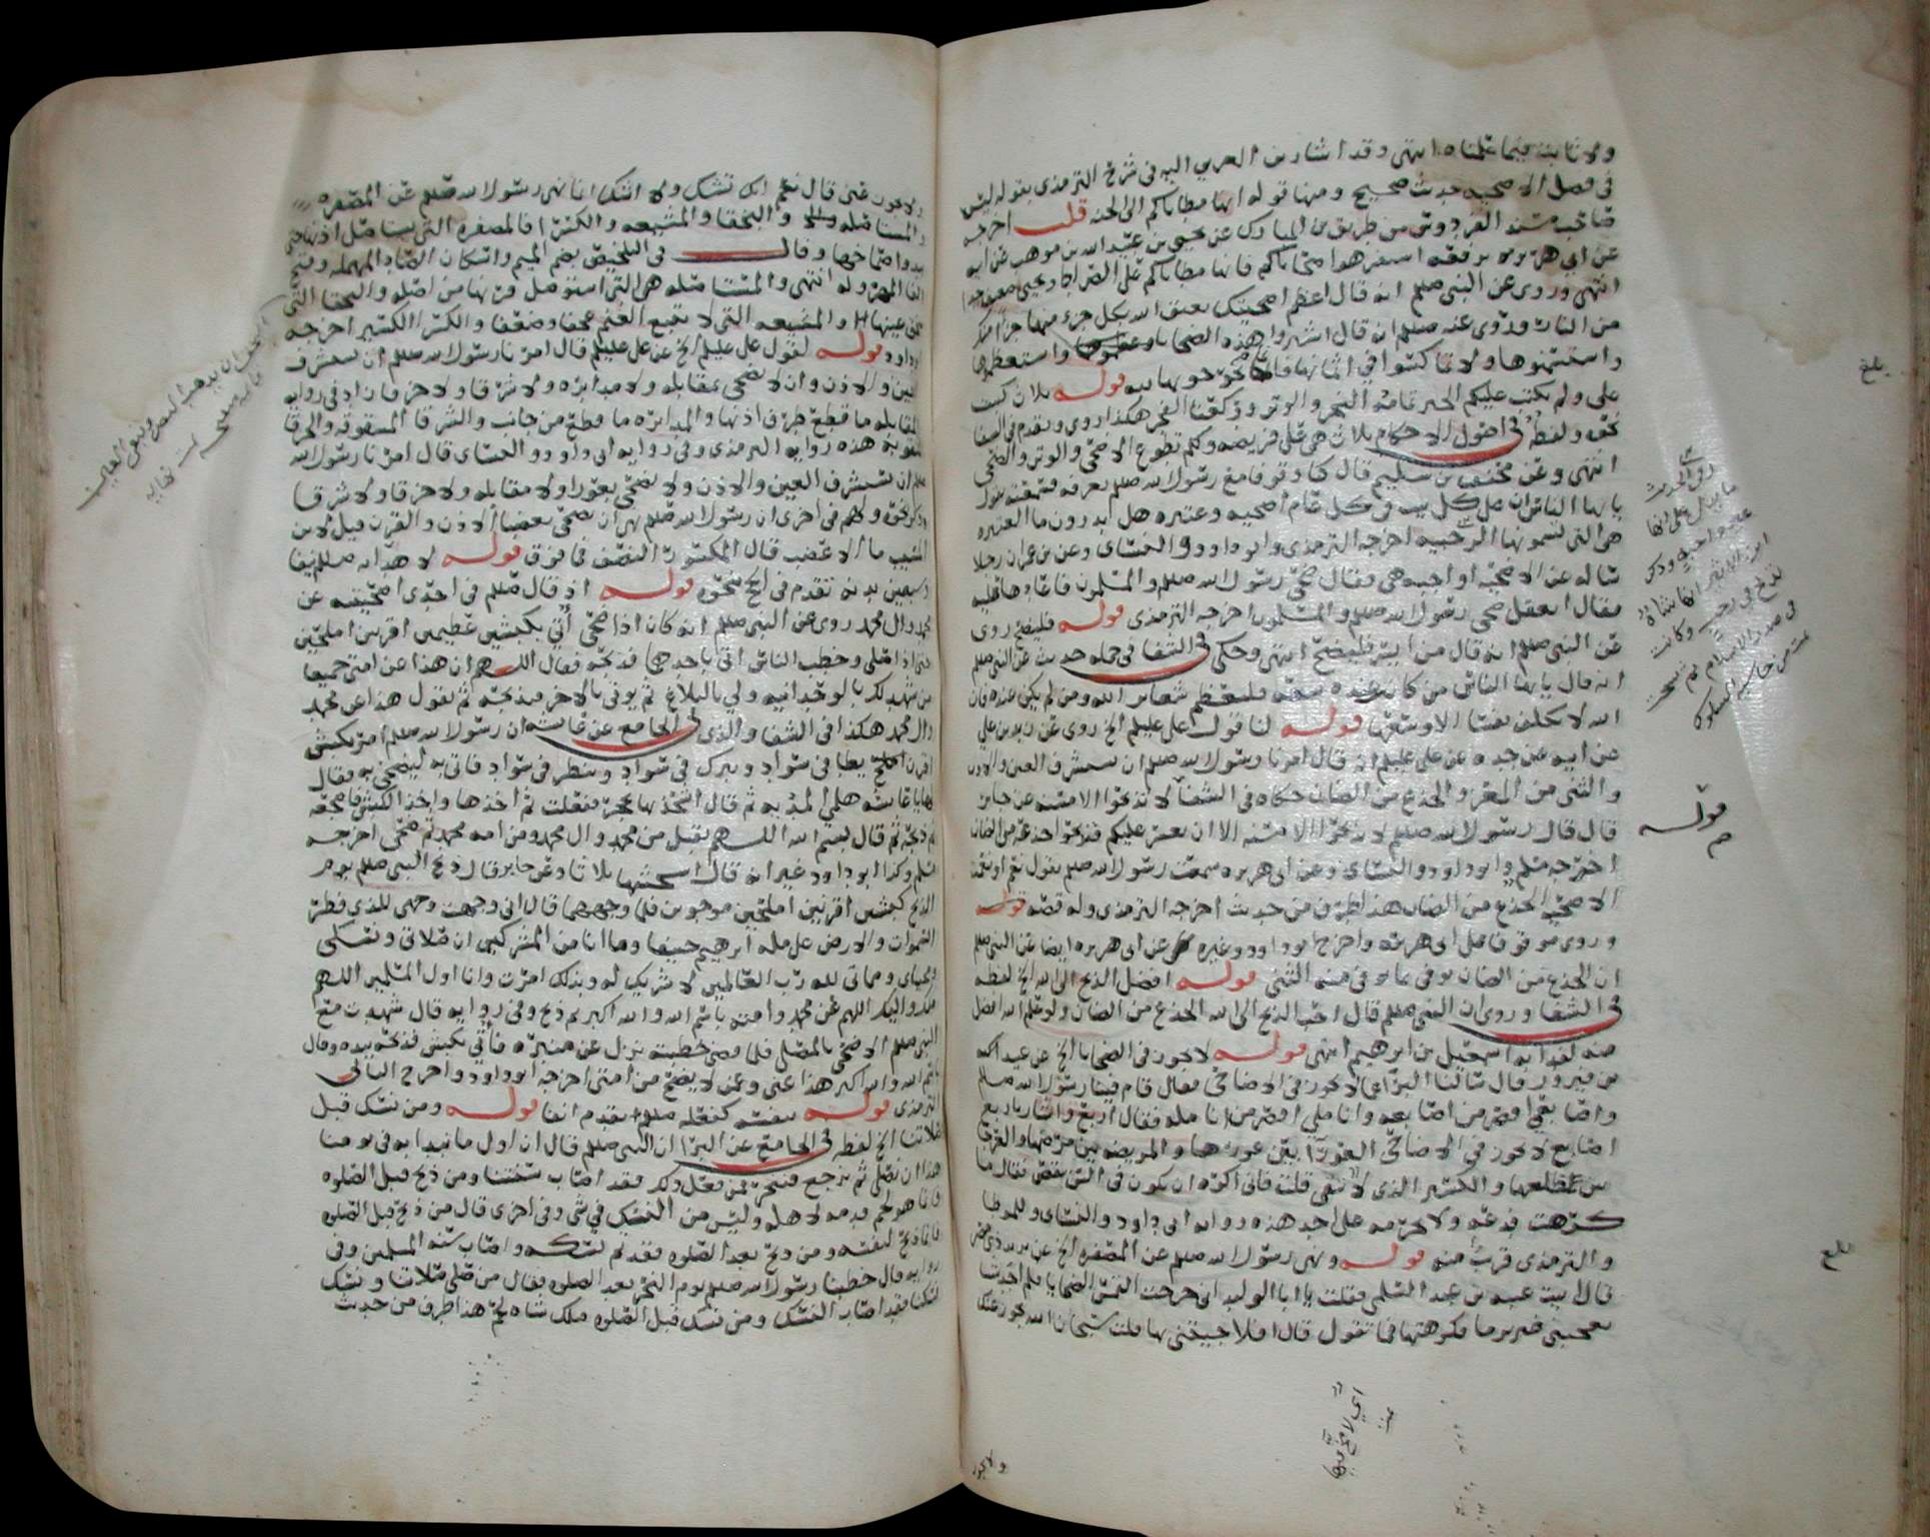 ولا ثابت فيما علمناه انتهى وقد اشار بن العربي اليه في شرح الترمذي بقوله ليس
في فضل الاضحيه حديث صحيح ومنها قوله انها مطاياكم الى الجنه قلت اخرجه
صاحب مسند الفردوس من طريق بن المبارك عن يحيى بن عبيد الله بن موهب عن ابيه
عن ابي هريره رفعه استفرهوا ضحاياكم فانها مطاياكم على الصراط ويحيى ضعيف جدا
انتهى وروي عن النبي صللم انه قال اعظم اضحيتك يعتق الله بكل جزء منها جزا منك
من النار وروى عنه صللم انه قال اشتروا هذه الضحايا واستعظموها
واستسمنوها ولا تماكسوا في اثمانها قوله ثلاث كتبت
علي ولم تكتب عليكم الخبر تمامه النحر والوتر وركعتا الفجر هكذا روي وتقدم في الشفا
نحوه ولفظ في اصول الاحكام ثلاث هي علي فريضه ولكم تطوع الاضحى والوتر والضحى
انتهى وعن مخنف بن سليم قال كنا وقوفا مع رسول الله صللم بعرفه فسمعته يقول
يا ايها الناس ان على كل بيت في كل عام اضحيه وعتيره هل تدرون ما العتيره
هي التي تسمونها الرجبيه اخرجه الترمذي وابو داود والنسائي وعن بن عمر ان رجلا
ساله عن الاضحيه اواجبه هي فقال ضحى رسول الله صللم والمسلمون فاعادها عليه
فقال اتعقل ضحى رسول الله صللم والمسلمون اخرجه الترمذي قوله فليضح روى
عن النبي صللم انه قال من ايسر فليضح انتهى وحكى في الشفا في جمله حديث عن النبي صللم
انه قال يا ايها الناس من كانت عنده سعه فليعظم شعائر الله ومن لم يكن عنده فان
الله لا يكلف نفسا الا وسعها قوله لنا قول علي عليلم الخ روى عن زيد بن علي
عن ابيه عن جده عن علي عليلم انه قال امرنا رسول الله صللم ان نستشرف العين والاذن
والثني من المعز والجذع من الضان حكاه في الشفا لا تذبحوا الا مسنه عن جابر
قال قال رسول الله صللم لا تذبحوا الا مسنه الا ان يعسر عليكم فتذبحوا جذعه من الضان
اخرجه مسلم وابو داود والنسائي وعن ابي هريره سمعت رسول الله صللم يقول نعم او نعمت
الاضحيه الجذع من الضان هذا طرف من حديث اخرجه الترمذي وله قصه قوله
وروي موقوفا على ابي هريره واخرج ابو داود وغيره عن ابي هريره ايضا عن النبي صللم
ان الجذع من الضان يوفي ما يوفي منه الثني قوله افضل الذبح الى الله الخ لفظه
في الشفا وروي ان النبي صللم قال احب الذبح الى الله الجذع من الضان ولو علم الله افضل
منه لفدا به اسمعيل بن ابرهيم انتهى قوله لا يجوز في الضحايا الخ عن عبيد
بن فيروز قال سالنا البرا عما لا يجوز في الاضاحي فقال قام فينا رسول الله صللم
واصابعي اقصر من اصابعه واناملي اقصر من انامله فقال اربع واشار باربع
اصابع لا يجوز في الاضاحي العورا بين عورها والمريضه بين مرضها والعرجا
بين ظلعها والكسير الذي لا تنقى قلت فاني اكره ان يكون في السن نقص فقال ما
كرهت فدعه ولا تحرمه على احد هذه روايه ابي داود والنسائي وللموطا
والترمذي قريب منه قوله ونهى رسول الله صللم عن المصفره الخ عن يزيد ذي مصر
قال اتيت عتبه بن عبد السلمي فقلت يا ابا الوليد اني خرجت التمس الضحايا فلم اجد شيا
يعجبني غير ثرما فكرهتها فما تقول قال افلا جيتني بها قلت سبحان الله تجوز عنك
ولا تجوز
بلغ
قوله
ولا تجوز عني قال نعم انك تشك ولا اشك انما نهى رسول الله صللم عن المصفره
والمستاصله والبخقا والمشيعه والكسرا فالمصفره التي يستاصل اذنها حتى
يبدو اصماخها وقال في التلخيص بضم الميم واسكان الصاد المهمله وفتح
الفا المهزوله انتهى والمستاصله هي التي استوصل قرنها من اصله والبخقا التي
تبخق عينها والمشيعه التي لا تتبع الغنم عجفا وضعفا والكسرا الكسير اخرجه
ابو داود قوله لقول علي عليلم الخ عن علي عليلم قال امرنا رسول الله صللم ان نستشرف
العين والاذن وان لا نضحي بمقابله ولا مدابره ولا شرقا ولا خرقا زاد في روايه
المقابله ما قطع طرف اذنها والمدابره ما قطع من جانب والشرقا المشقوقه والخرقا
المثقوبه هذه روايه الترمذي وفي روايه ابي داود والنسائي قال امرنا رسول الله
صللم ان نستشرف العين والاذن ولا نضحي بعورا ولا مقابله ولا خرقا ولا شرقا
وذكر نحوه ولهم في اخرى ان رسول الله صللم نهى ان نضحي بعضبا الاذن والقرن قيل لابن
المسيب ما الاعضب قال المكسور النصف فما فوق قوله لاهدائه صللم نيفا
وسبعين بدنه تقدم في الحج نحوه قوله اذ قال صللم في احدى اضحيتيه عن
محمد وال محمد روي عن النبي صللم انه كان اذا ضحى اتي بكبشين عظيمين اقرنين املحين
حتى اذا صلى وخطب الناس اتي باحدهما فذبحه فقال اللهم ان هذا عن امتي جميعا
من شهد لك بالوحدانيه ولي بالبلاغ ثم يوتى بالاخر فيذبحه ثم يقول هذا عن محمد
وال محمد هكذا في الشفا والذي في الجامع عن عائشه ان رسول الله صللم امر بكبش
اقرن يطا في سواد ويبرك في سواد وينظر في سواد فاتي به ليضحي به فقال
لها يا عائشه هلمي المديه ثم قال اشحذيها بحجر ففعلت ثم اخذها واخذ الكبش فاضجعه
ثم ذبحه ثم قال بسم الله اللهم تقبل من محمد وال محمد ومن امه محمد ثم ضحى اخرجه
مسلم وكذا ابو داود غير انه قال اشحثيها ثلاثا وعن جابر قال ذبح النبي صللم يوم
الذبح كبشين اقرنين املحين موجوين فلما وجههما قال اني وجهت وجهي للذي فطر
السموات والارض على مله ابرهيم حنيفا وما انا من المشركين ان صلاتي ونسكي
ومحياي ومماتي لله رب العالمين لا شريك له وبذلك امرت وانا اول المسلمين اللهم
منك واليك اللهم عن محمد وامته باسم الله والله اكبر ثم ذبح وفي روايه قال شهدت مع
النبي صللم الاضحى بالمصلى فلما قضى خطبته نزل عن منبره فاتي بكبش فذبحه بيده وقال
بسم الله والله اكبر هذا عني وعمن لا يضحي من امتي اخرجه ابو داود واخرج الثاني
الترمذي قوله بنفسه كفعله صللم تقدم انفا قوله ومن نسك قبل
صلاتنا الخ لفظه في الجامع عن البرا ان النبي صللم قال ان اول ما نبدا به في يومنا
هذا ان نصلي ثم نرجع فننحر فمن فعل ذلك فقد اصاب سنتنا ومن ذبح قبل الصلوه
فانما هو لحم قدمه لاهله وليس من النسك في شي وفي اخرى قال من ذبح قبل الصلوه
فانما ذبح لنفسه ومن ذبح بعد الصلوه فقد تم نسكه واصاب سنه المسلمين وفي
روايه قال خطبنا رسول الله صللم يوم النحر بعد الصلوه فقال من صلى صلاتنا ونسك
نسكنا فقد اصاب النسك ومن نسك قبل الصلوه فتلك شاه لحم هذا طرف من حديث